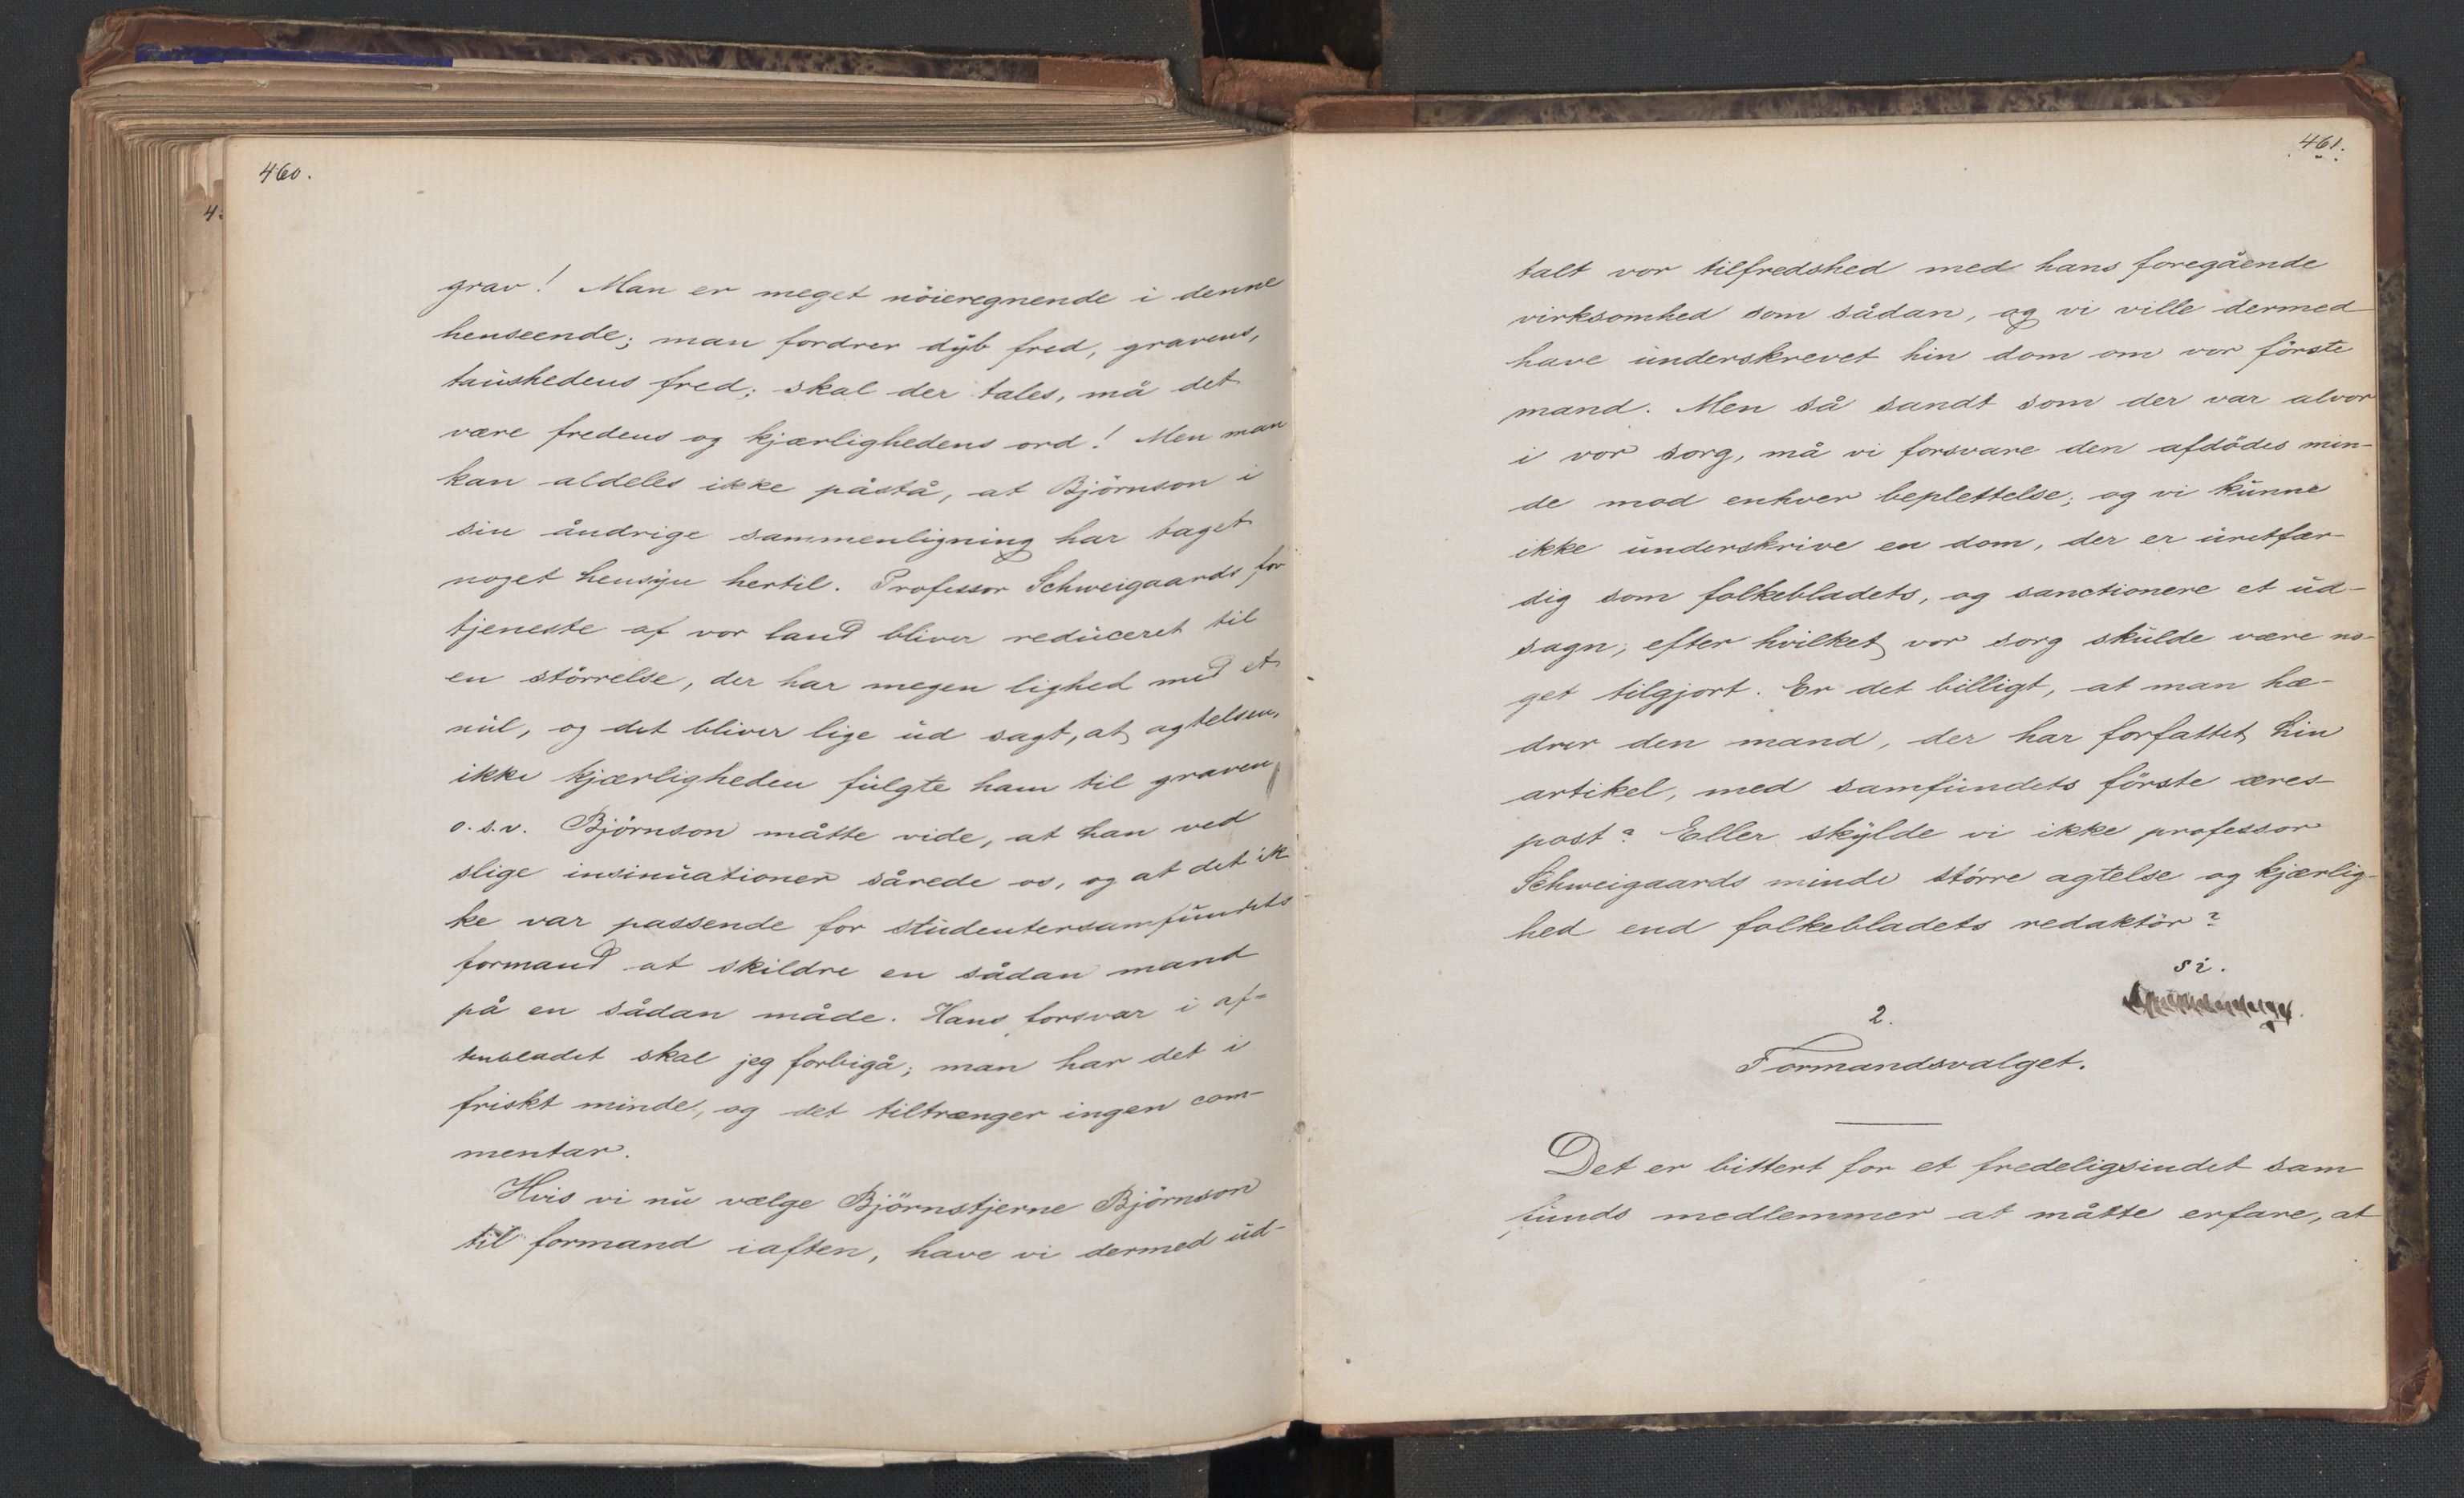 460.
grav! Man er meget nöieregnende i denne
henseende; man fordrer dyb fred, gravens,
taushedens fred; skal der tales, må det
være fredens og kjærlighedens ord! Men man
kan aldeles ikke påstå, at Björnson i
sin åndrige sammenligning har taget
noget hensyn hertil. Professor Schweigaards for
tjeneste af vor land bliver reduceret til
en störrelse, der har megen lighed med et
nul, og det bliver lige ud sagt, at agtelsen,
ikke kjærligheden fulgte ham til graven
o.s.v. Björnson måtte vide, at han ved
slige insinuationer sårede os, og at det ik
ke var passende for studentersamfundets
formand at skildre en sådan mand
på en sådan måde. Hans forsvar i af-
tenbladet skal jeg forbigå; man har det i
friskt minde, og det tiltrænger ingen com-
mentar.
Hvis vi nu vælge Björnstjerne Björnson
til formand iaften, have vi dermed ud-
461.
talt vor tilfredshed med hans foregående
virksomhed som sådan, og vi ville dermed
have underskrevet hin dom om vor förste
mand. Men så sandt som der var alvor
i vor sorg, må vi forsvare den afdödes min-
de mod enhver beplettelse; og vi kunne
ikke underskrive en dom, der er uretfær-
dig som folkebladets, og sanctionere et ud-
sagn, efter hvilket vor sorg skulde være no-
get tilgjort. Er det billigt, at man hæ-
drer den mand, der har forfattet hin
artikel, med samfundets förste æres
post? Eller skylde vi ikke professor
Schweigaards minde större agtelse og kjærlig-
hed end folkebladets redaktör?
si.
2.
Formandsvalget.
Det er bittert for et fredeligsindet sam
funds medlemmer at måtte erfare, at